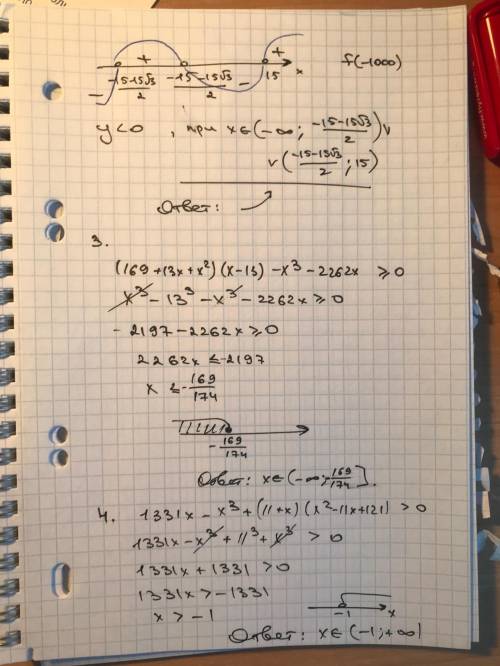 + + f(-1000)
- (-15-15√3)/2 (-15-15√3)/2 - 15 x
y<0 , при x∈(-∞; (-15-15√3)/2)∨
∨((-15-15√3)/2; 15)
Ответ:
3.
(169+13x+x²)(x-13)-x³-2262x ≥0
x³-13³-x³-2262x≥0
-2197-2262x≥0
2262x≤-2197
x ≤-169/174
-169/174
Ответ: x∈(-∞;-169/174].
4. 1331x-x³+(11+x)(x²-11x+121)>0
1331x-x³+11³+x³>0
1331x+1331>0
1331x>-1331
x>-1
-1 x
Ответ: x∈(-1;+∞)